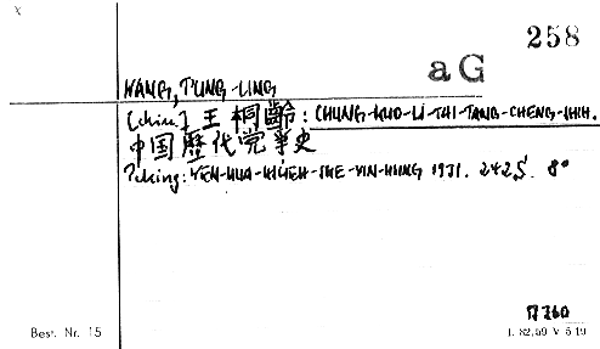 x
258
a G
WANG, T'UNG-LING
[chin.] 王 桐齡 : CHUNG-KUO-LI-TAI-TANG-CHENG-SHIH.
中国歷代党爭史
Peking: YEN-HUA-HSÜEH-SHE-YIN-HUNG 1931. 242 S. 8°
Best. Nr. 15
I. 82,59 V 5 19